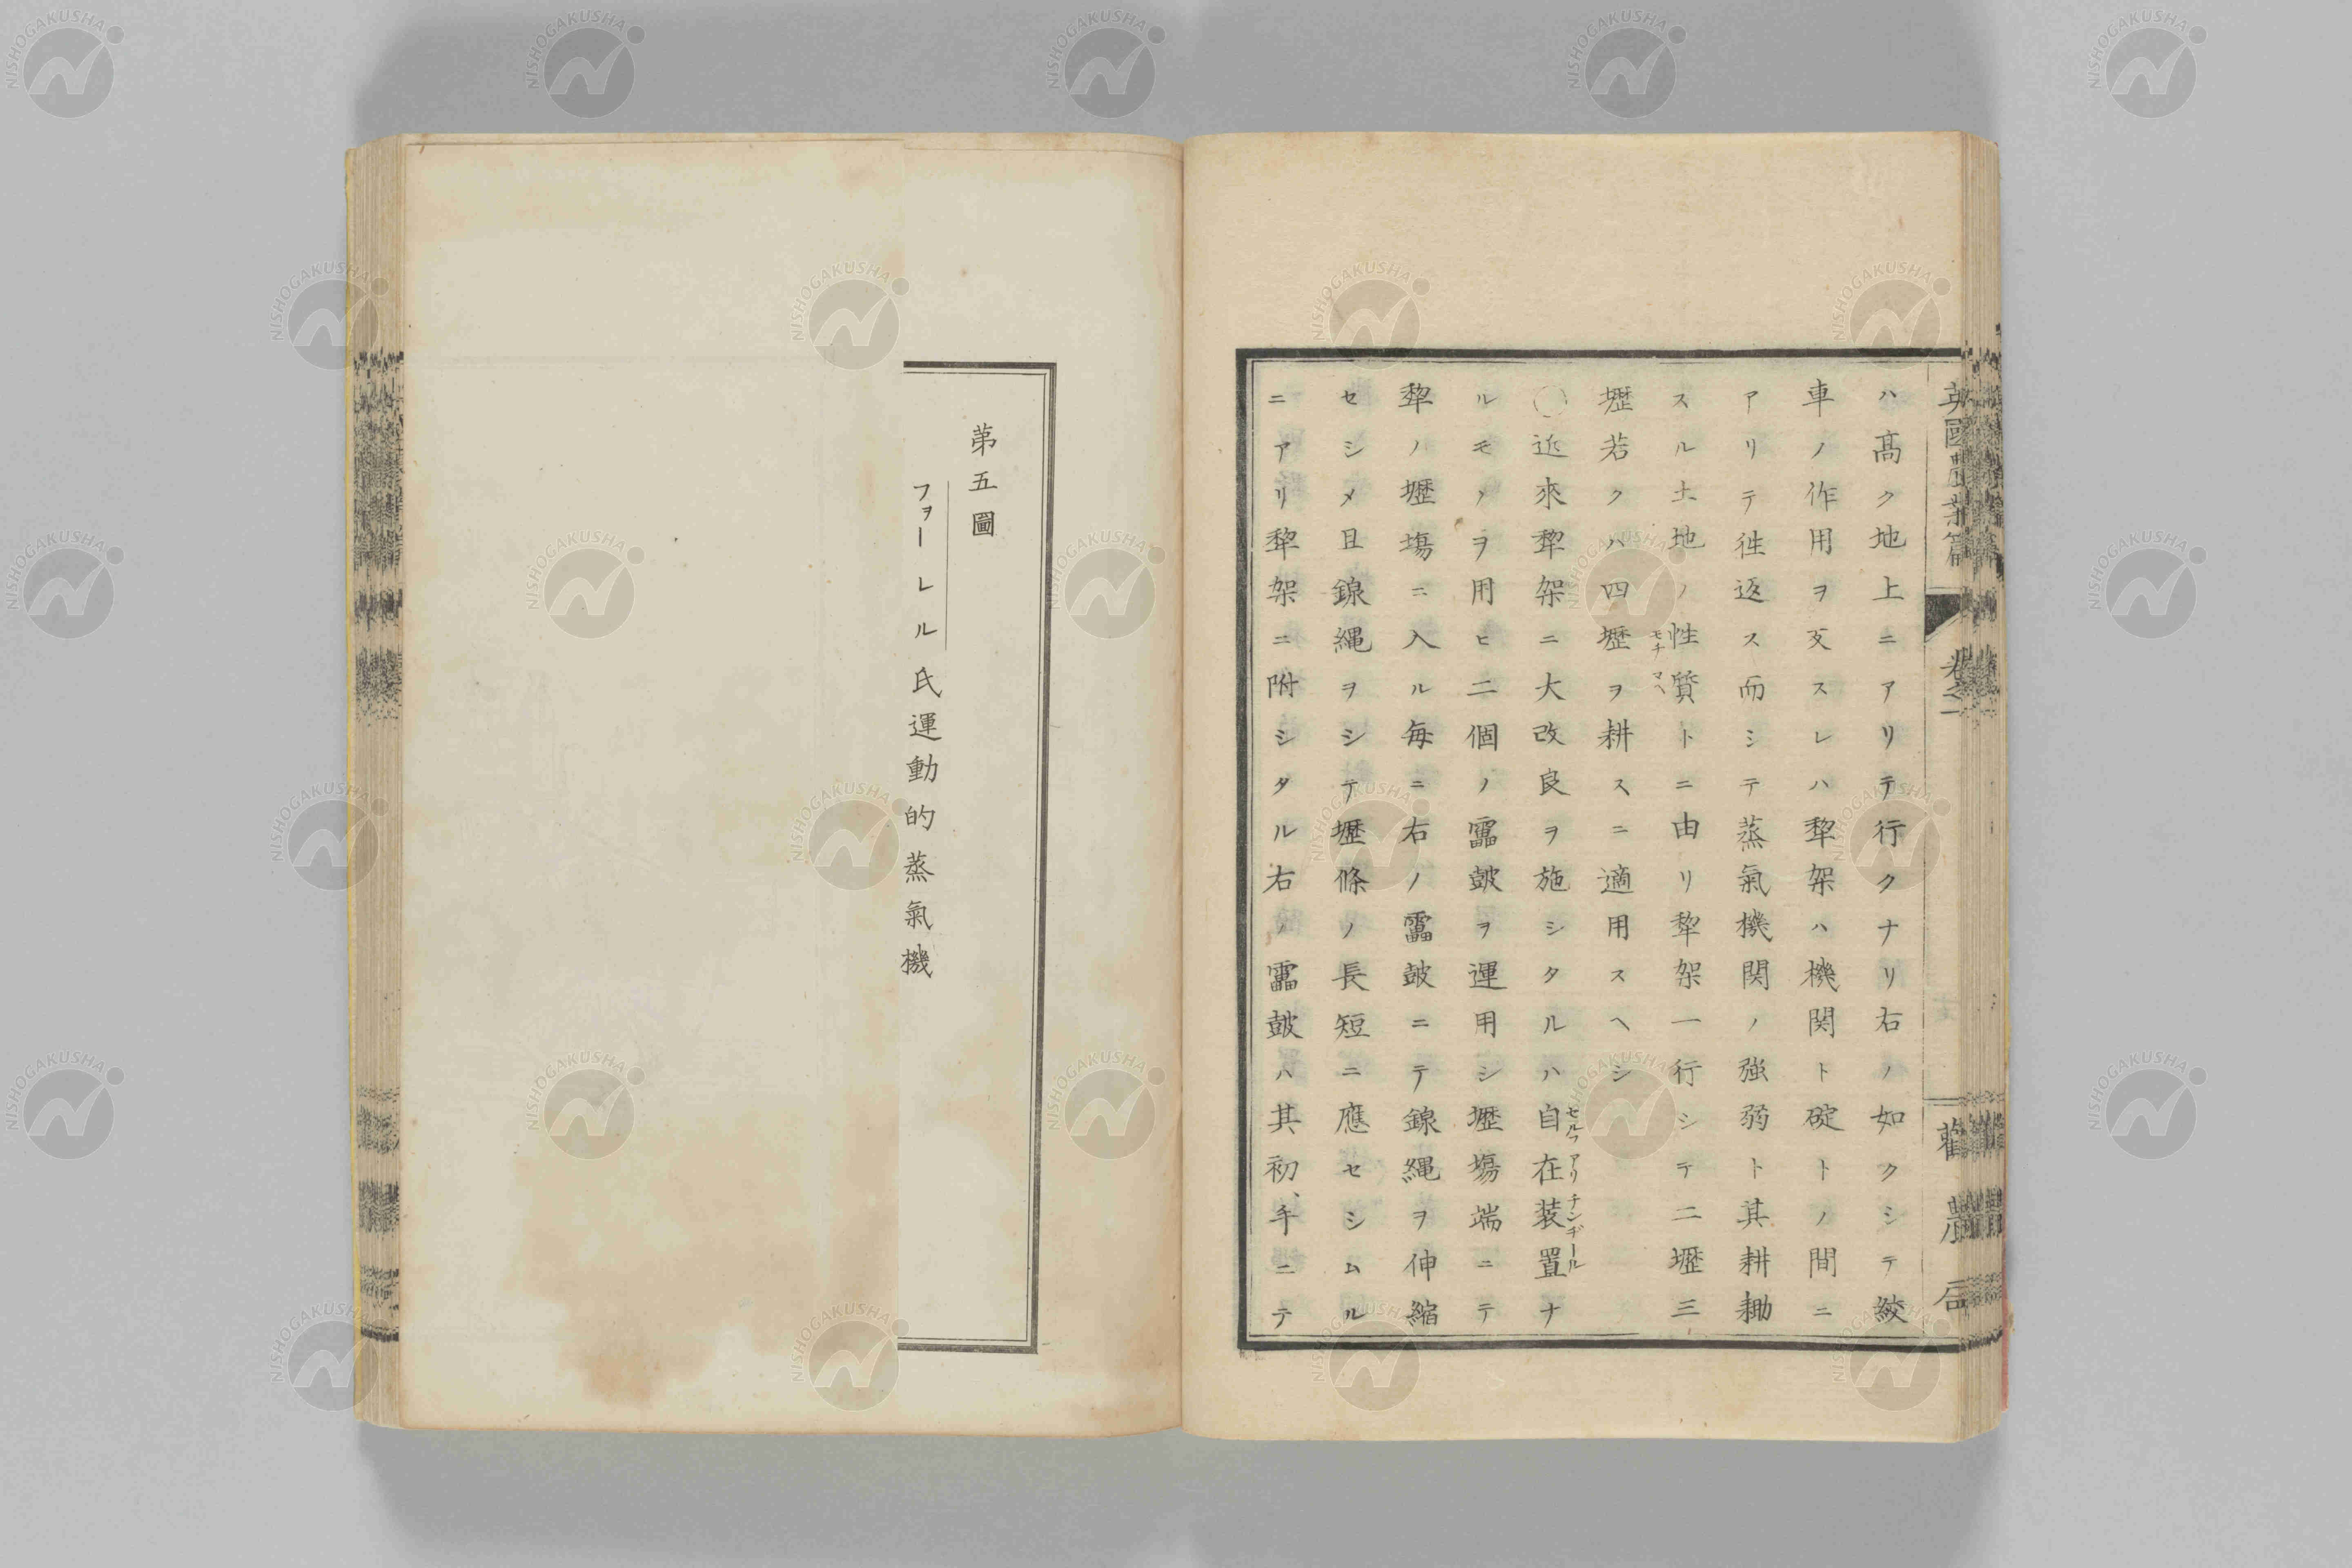 英國農業篇 卷之一 勸農局
ハ高ク地上ニアリテ行クナリ右ノ如クシテ絞
車ノ作用ヲ反スレハ犂架ハ機関ト碇トノ間ニ
アリテ徃返ス而シテ蒸氣機関ノ強弱ト其耕耡
スル土地ノ性質トニ由リ犂架一行シテ二壢三
モチマヘ
壢若クハ四壢ヲ耕スニ適用スヘシ
◯近來犂架ニ大改良ヲ施シタルハ自在装置ナ
セルフアリチンヂール
ルモノヲ用ヒ二個ノ鼓ヲ運用シ壢塲端ニテ
犂ノ壢塲ニ入ル毎ニ右ノ鼓ニテ線縄ヲ伸縮
セシメ且線縄ヲシテ壢條ノ長短ニ應セシムル
ニアリ犂架ニ附シタル右ノ鼓ハ其初、手ニテ
第五圖
フヲーレル氏運動的蒸氣機
NISHOGAKUSHA